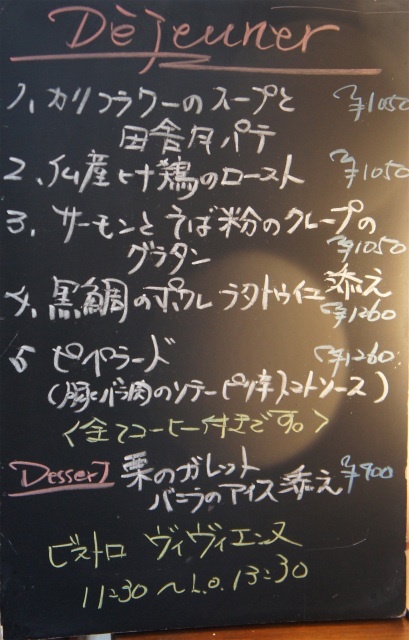 Déjeuner
1、カリフラワーのスープと ¥1050
田舎風パテ
2、仏産ヒナ鶏のロースト ¥1050
3、サーモンとそば粉のクレープの
グラタン ¥1050
4、黒鯛のポワレ ラタトゥイユ 添え ¥1260
5 ピペラード ¥1260
(豚バラ肉のソテーピリ辛トマトソース)
〈全てコーヒー付きです。〉
Dessert 栗のガレット
バニラのアイス添え ¥900
ビストロ ヴィヴィエンヌ
11:30 〜 L.O. 13:30